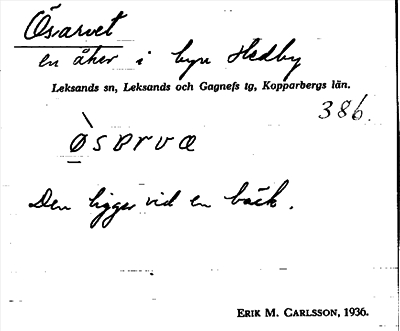 Ösarvet
en åker i byn Hedby
Leksands sn, Leksands och Gagnefs tg, Kopparbergs län.
386.
ø̀sɐrvæ
Den ligger vid en bäck.
ERIK M. CARLSSON, 1936.